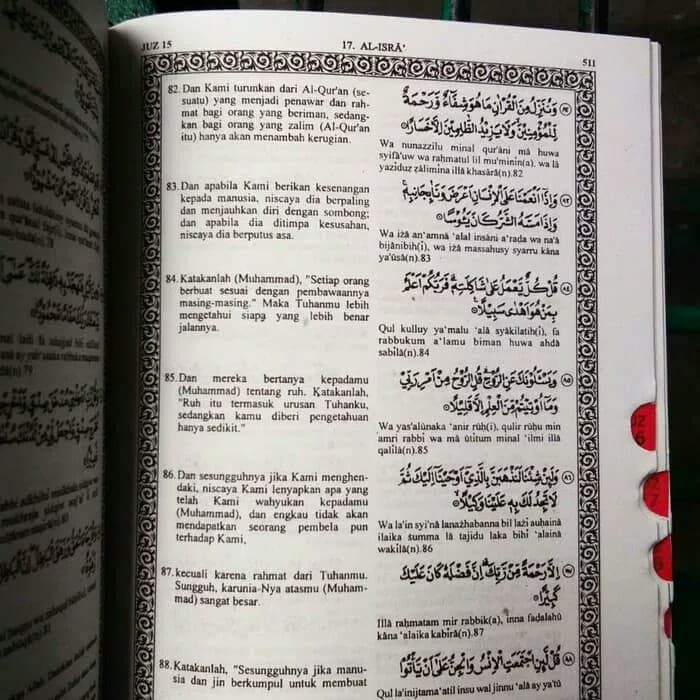 JUZ 15
17. AL-ISRĀ'
511
82. Dan Kami turunkan dari Al-Qur'an (se-
suatu) yang menjadi penawar dan rah-
mat bagi orang yang beriman, sedang-
kan bagi orang yang zalim (Al-Qur'an
itu) hanya akan menambah kerugian.
وَنُنَزِّلُ مِنَ الْقُرْاٰنِ مَا هُوَ شِفَاۤءٌ وَّرَحْمَةٌ
لِّلْمُؤْمِنِيْنَۙ وَلَا يَزِيْدُ الظّٰلِمِيْنَ اِلَّا خَسَارًا ۝٨٢
Wa nunazzilu minal qur'āni mā huwa
syifā'uw wa rahmatul lil mu'minīn(a), wa lā
yazīduz ẓālimīna illā khasārā(n).82
83. Dan apabila Kami berikan kesenangan
kepada manusia, niscaya dia berpaling
dan menjauhkan diri dengan sombong;
dan apabila dia ditimpa kesusahan,
niscaya dia berputus asa.
وَاِذَآ اَنْعَمْنَا عَلَى الْاِنْسَانِ اَعْرَضَ وَنَاٰ بِجَانِبِهٖۚ
وَاِذَا مَسَّهُ الشَّرُّ كَانَ يَـُٔوْسًا ۝٨٣
Wa iżā an'amnā 'alal insāni a'raḍa wa na'ā
bijānibih(ī), wa iżā massahusy syarru kāna
ya'ūsā(n).83
84. Katakanlah (Muhammad), "Setiap orang
berbuat sesuai dengan pembawaannya
masing-masing." Maka Tuhanmu lebih
mengetahui siapa yang lebih benar
jalannya.
قُلْ كُلٌّ يَّعْمَلُ عَلٰى شَاكِلَتِهٖۗ فَرَبُّكُمْ اَعْلَمُ
بِمَنْ هُوَ اَهْدٰى سَبِيْلًا ۝٨٤
Qul kulluy ya'malu 'alā syākilatih(ī), fa
rabbukum a'lamu biman huwa ahdā
sabīlā(n).84
85. Dan mereka bertanya kepadamu
(Muhammad) tentang ruh. Katakanlah,
"Ruh itu termasuk urusan Tuhanku,
sedangkan kamu diberi pengetahuan
hanya sedikit."
وَيَسْـَٔلُوْنَكَ عَنِ الرُّوْحِۗ قُلِ الرُّوْحُ مِنْ اَمْرِ رَبِّيْ
وَمَآ اُوْتِيْتُمْ مِّنَ الْعِلْمِ اِلَّا قَلِيْلًا ۝٨٥
Wa yas'alūnaka 'anir rūḥ(i), qulir rūḥu min
amri rabbī wa mā ūtītum minal 'ilmi illā
qalīlā(n).85
86. Dan sesungguhnya jika Kami menghen-
daki, niscaya Kami lenyapkan apa yang
telah Kami wahyukan kepadamu
(Muhammad), dan engkau tidak akan
mendapatkan seorang pembela pun
terhadap Kami,
وَلَىِٕنْ شِئْنَا لَنَذْهَبَنَّ بِالَّذِيْٓ اَوْحَيْنَآ اِلَيْكَ ثُمَّ
لَا تَجِدُ لَكَ بِهٖ عَلَيْنَا وَكِيْلًا ۝٨٦
Wa la'in syi'nā lanażhabanna bil lażī auḥainā
ilaika ṡumma lā tajidu laka bihī 'alainā
wakīlā(n).86
87. kecuali karena rahmat dari Tuhanmu.
Sungguh, karunia-Nya atasmu (Muham-
mad) sangat besar.
اِلَّا رَحْمَةً مِّنْ رَّبِّكَۗ اِنَّ فَضْلَهٗ كَانَ عَلَيْكَ
كَبِيْرًا ۝٨٧
Illā raḥmatam mir rabbik(a), inna faḍlahū
kāna 'alaika kabīrā(n).87
88. Katakanlah, "Sesungguhnya jika manu-
sia dan jin berkumpul untuk membuat
قُلْ لَّىِٕنِ اجْتَمَعَتِ الْاِنْسُ وَالْجِنُّ عَلٰٓى اَنْ يَّأْتُوْا
Qul la'inijtama'atil insu wal jinnu 'alā ay ya'tū